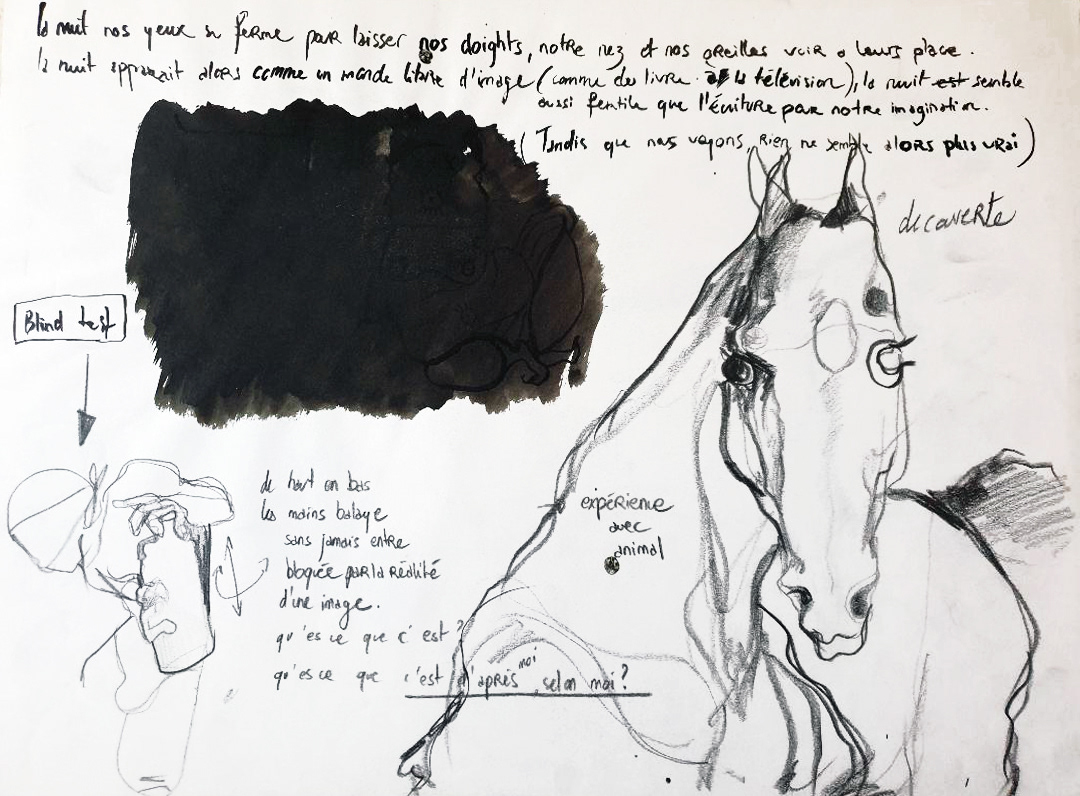 la nuit nos yeux se ferme pour laisser nos doights, notre nez et nos oreilles voir a leurs place.
la nuit apparait alors comme un monde libre d'image (comme du livre à la télévision), la nuit est semble
aussi fertile que l'écriture pour notre imagination.
(Tandis que nous voyons, Rien ne semble alors plus vrai)
decouverte
Blind test
de haut en bas
les mains balaye
sans jamais entre
bloquée par la réalité
d'une image.
qu'es ce que c'est ?
qu'es ce que c'est d'après moi, selon moi ?
expérience
avec
animal